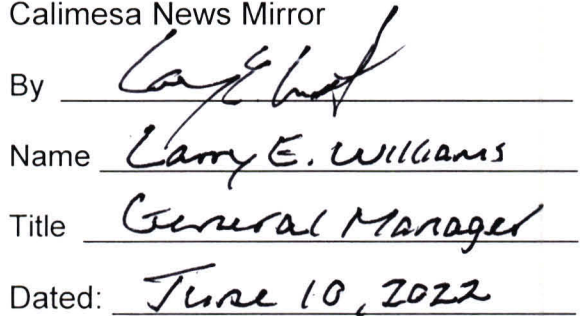 Calimesa News Mirror
By
Name Larry E. Williams
Title General Manager
Dated: June 10, 2022